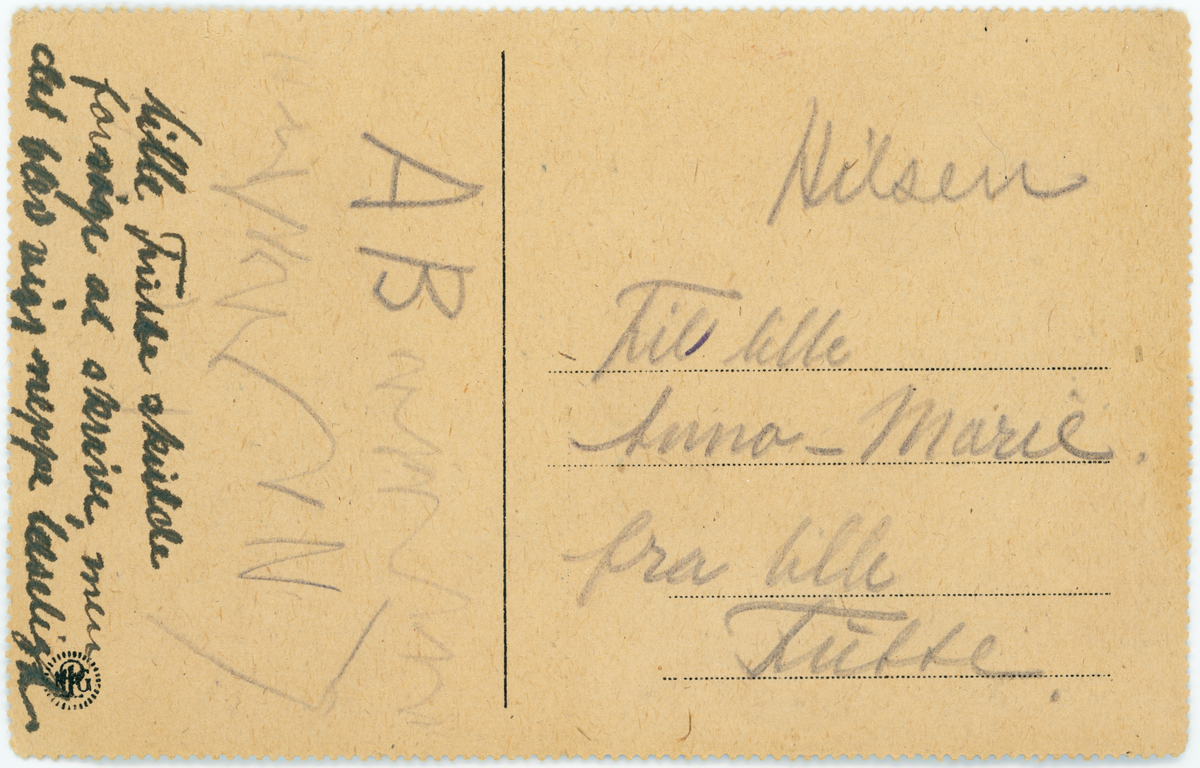 Hilsen
Til lille
Anna-Marie.
fra lille
Tutte.
A B
lille Tutte skulde
forsøge at skrive, men
det blev vist neppe læseligt